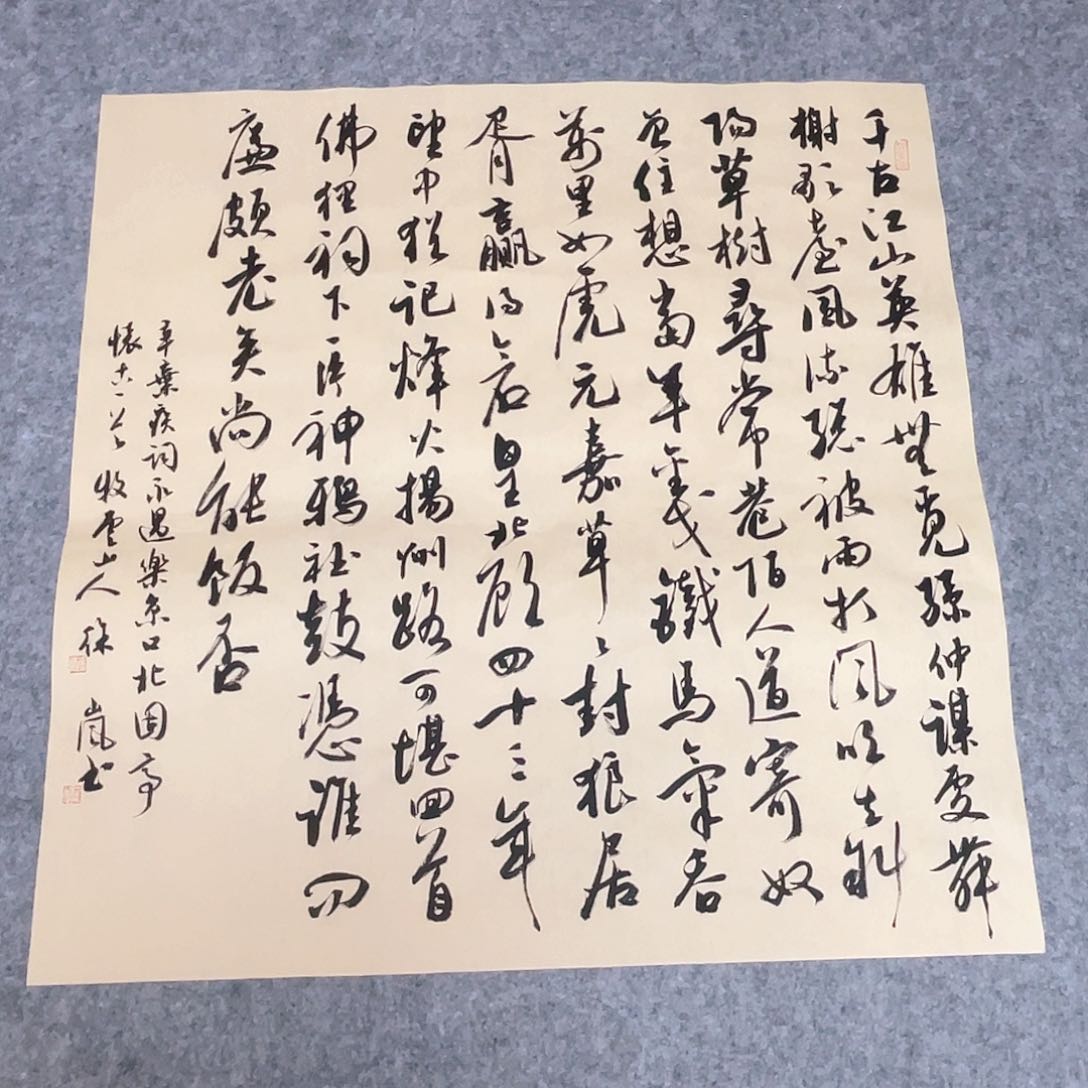 千古江山英雄無覓孫仲謀處舞
榭歌臺風流總被雨打風吹去斜
陽草樹尋常巷陌人道寄奴
曾住想當年金戈鐵馬氣吞
萬里如虎元嘉草々封狼居
胥贏得倉皇北顧四十三年
望中猶記烽火揚州路可堪回首
佛狸祠下一片神鴉社鼓憑誰問
廉頗老矣尚能飯否
辛棄疾詞永遇樂京口北固亭
懷古一首牧雲山人徐嵐書